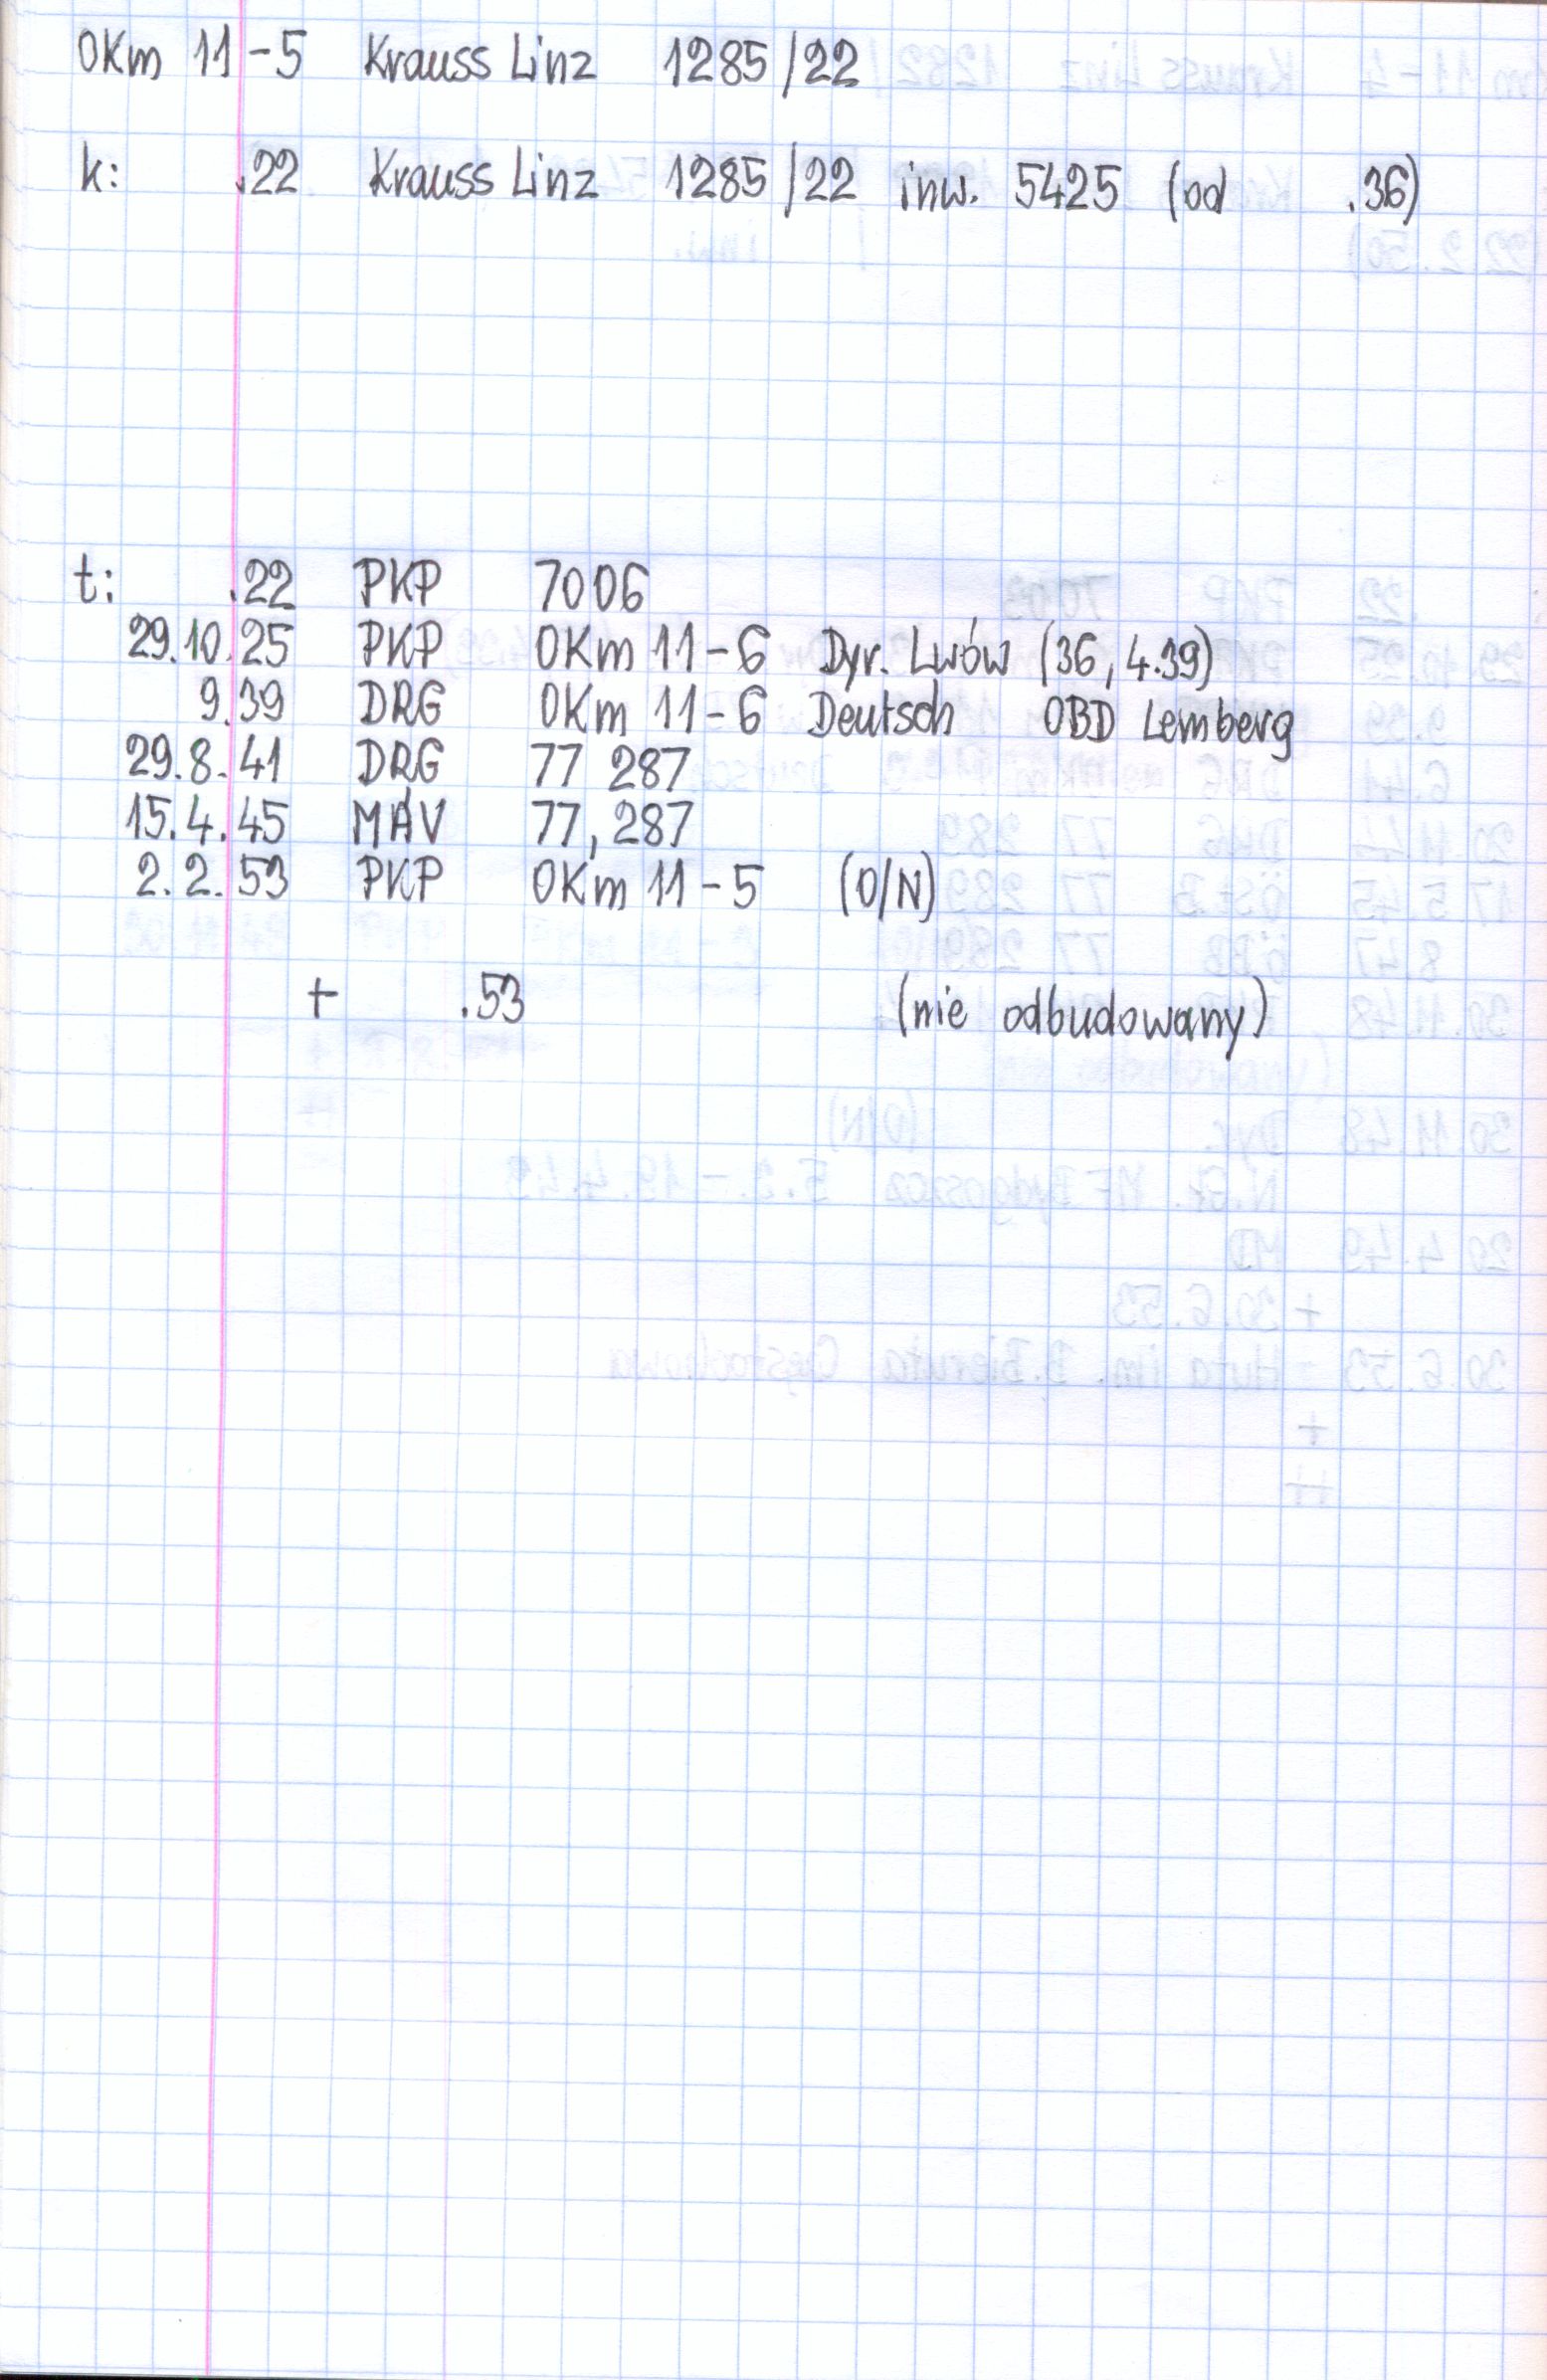 OKm 11-5 Krauss Linz 1285/22
k: .22 Krauss Linz 1285/22 inw. 5425 (od .36)
t: .22 PKP 7006
29.10.25 PKP OKm 11-6 Dyr. Lwów (36, 4.39)
9.39 DRG OKm 11-6 Deutsch OBD Lemberg
29.8.41 DRG 77 287
15.4.45 MÁV 77,287
2.2.53 PKP OKm 11-5 (O/N)
+ .53 (nie odbudowany)